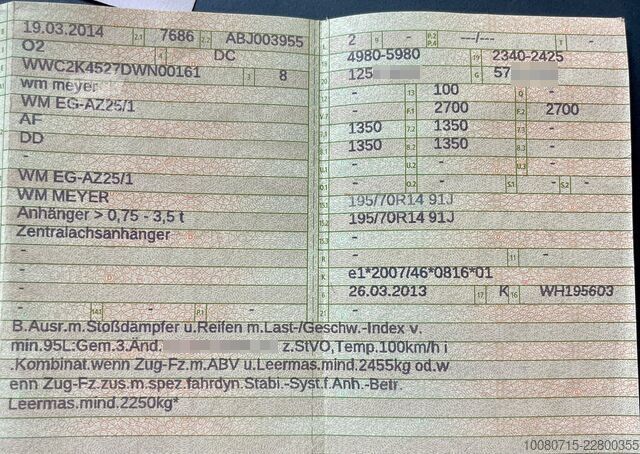 19.03.2014 2.1 7686 2.2 ABJ003955
O2 4 DC
WWC2K4527DWN00161 3 8
wm meyer
WM EG-AZ25/1
AF
DD
-
WM EG-AZ25/1
WM MEYER
Anhänger > 0,75 - 3,5 t
Zentralachsanhänger
-
-
-
- 14.1 - P.1 -
L 2 9 - P.2 P.4 ---/--- T -
18 4980-5980 19 2340-2425
20 125 G 57
- 13 100 Q -
V.7 - F.1 2700 F.2 2700
7.1 1350 7.2 1350 7.3 -
8.1 1350 8.2 1350 8.3 -
U.1 - U.2 - U.3 -
O.1 - O.2 - S.1 - S.2 -
15.1 195/70R14 91J
15.2 195/70R14 91J
15.3 -
R - 11 -
K e1*2007/46*0816*01
6 26.03.2013 17 K 16 WH195603
21 -
B.Ausr.m.Stoßdämpfer u.Reifen m.Last-/Geschw.-Index v.
min.95L:Gem.3.Änd. z.StVO,Temp.100km/h i
.Kombinat.wenn Zug-Fz.m.ABV u.Leermas.mind.2455kg od.w
enn Zug-Fz.zus.m.spez.fahrdyn.Stabi.-Syst.f.Anh.-Betr.
Leermas.mind.2250kg*
10080715-22800355